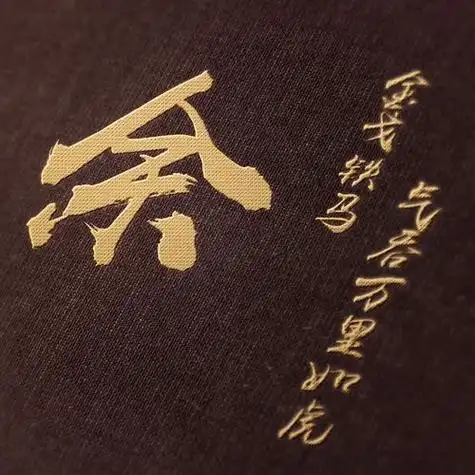 余
金戈铁马
气吞万里如虎